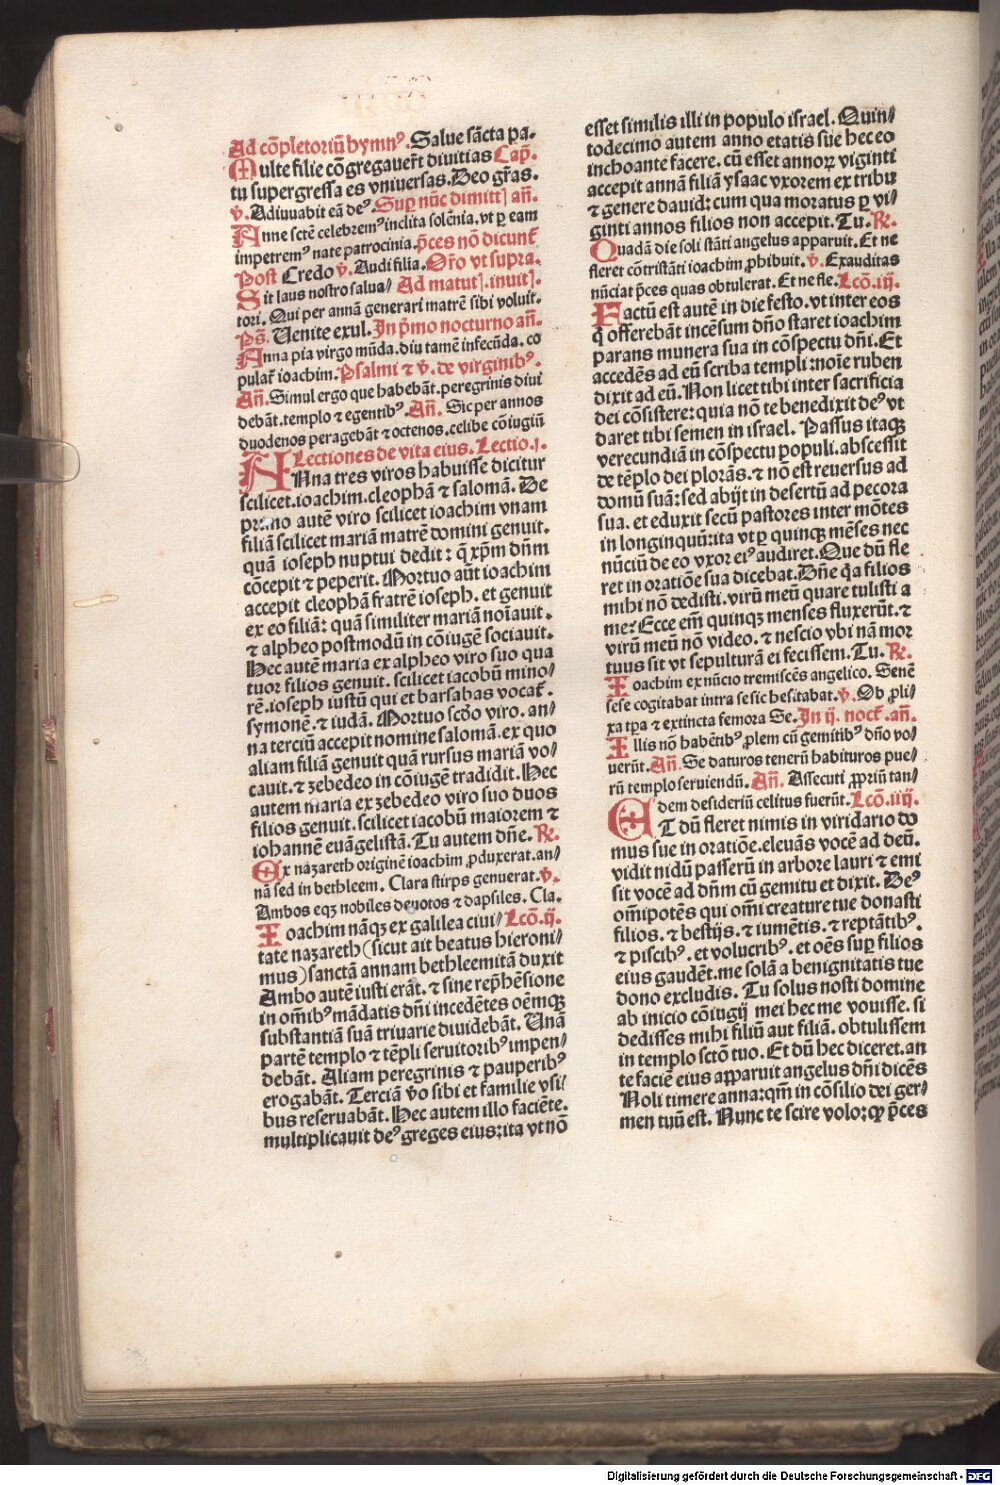 Ad cōpletoriū hymnꝰ. Salue sācta pa.
Multe filie cōgregauer̄t diuitias Cap̄.
tu supergressa es vniuersas. Deo gr̄as.
v̄. Adiuuabit eā deꝰ. Suꝑ nūc dimitt̄ an̄.
Anne sctē celebremꝰ inclita solēnia. vt ꝑ eam
impetremꝰ nate patrocinia. p̄ces nō dicunt̄
Post Credo v̄. Audi filia. Or̄o vt supra.
Sit laus nostro salua/ Ad matut̄. inuit̄.
tori. Qui per annā generari matrē sibi voluit.
Ps̄. Uenite exul. In p̄mo nocturno an̄.
Anna pia virgo mūda. diu tamē infecūda. co
pulat̄ ioachim. Psalmi ⁊ v̄. de virginibꝰ.
An̄. Simul ergo que habebāt. peregrinis diui
debāt. templo ⁊ egentibꝰ. An̄. Sic per annos
duodenos peragebāt ⁊ octenos. celibe cōiugiū
Lectiones de vita eius. Lectio. j.
ANna tres viros habuisse dicitur
scilicet. ioachim. cleophā ⁊ salomā. De
primo autē viro scilicet ioachim vnam
filiā scilicet mariā matrē domini genuit.
quā ioseph nuptui dedit: q̄ xp̄m dn̄m
cōcepit ⁊ peperit. Mortuo aūt ioachim
accepit cleophā fratrē ioseph. et genuit
ex eo filiā: quā similiter mariā noīauit.
⁊ alpheo postmodū in cōiugē sociauit.
Hec autē maria ex alpheo viro suo qua
tuor filios genuit. scilicet iacobū mino/
rē. ioseph iustū qui et barsabas vocat̄.
symonē. ⁊ iudā. Mortuo scd̄o viro. an/
na terciū accepit nomine salomā. ex quo
aliam filiā genuit quā rursus mariā vo/
cauit. ⁊ zebedeo in cōiugē tradidit. Hec
autem maria ex zebedeo viro suo duos
filios genuit. scilicet iacobū maiorem ⁊
iohannē euāgelistā. Tu autem dn̄e. R̄.
Ex nazareth originē ioachim ꝓduxerat. an/
nā sed in bethleem. Clara stirps genuerat. v̄.
Ambos eqꝫ nobiles deuotos ⁊ dapsiles. Cla.
Ioachim nāqꝫ ex galilea ciui/ Lcō. ij.
tate nazareth (sicut ait beatus hieroni/
mus) sanctā annam bethleemitā duxit
Ambo autē iusti erāt. ⁊ sine rep̄hēsione
in om̄ibꝰ mādatis dn̄i incedētes oēmqꝫ
substantiā suā triuarie diuidebāt. Unā
partē templo ⁊ tēpli seruitoribꝰ impen/
debāt. Aliam peregrinis ⁊ pauperibꝰ
erogabāt. Terciā v̄o sibi et familie vsi/
bus reseruabāt. Hec autem illo faciēte.
multiplicauit deꝰ greges eius: ita vt nō
esset similis illi in populo israel. Quin/
todecimo autem anno etatis sue hec eo
inchoante facere. cū esset annoꝝ viginti
accepit annā filiā ysaac vxorem ex tribu
⁊ genere dauid: cum qua moratus ꝑ vi/
ginti annos filios non accepit. Tu. R̄.
Quadā die soli stāti angelus apparuit. Et ne
fleret cōtristāti ioachim ꝓhibuit. v̄. Exauditas
nūciat p̄ces quas obtulerat. Et ne fle. Lcō. iij.
Factū est autē in die festo. vt inter eos
q̄ offerebāt incēsum dn̄o staret ioachim
parans munera sua in cōspectu dn̄i. Et
accedēs ad eū scriba templi: noīe ruben
dixit ad eū. Non licet tibi inter sacrificia
dei cōsistere: quia nō te benedixit deꝰ vt
daret tibi semen in israel. Passus itaqꝫ
verecundiā in cōspectu populi. abscessit
de tēplo dei plorās. ⁊ nō est reuersus ad
domū suā: sed abijt in desertū ad pecora
sua. et eduxit secū pastores inter mōtes
in longinquū: ita vt ꝑ quinqꝫ mēses nec
nūciū de eo vxor eiꝰ audiret. Que dū fle
ret in oratiōe sua dicebat. Dn̄e q̄a filios
mihi nō dedisti. virū meū quare tulisti a
me? Ecce em̄ quinqꝫ menses fluxerūt. ⁊
virū meū nō video. ⁊ nescio vbi nā mor
tuus sit vt sepulturā ei fecissem. Tu. R̄.
Ioachim ex nūcio tremiscēs angelico. Senē
sese cogitabat intra se sic hesitabat. v̄. Ob ꝓli/
xa tꝑa ⁊ extincta femora Se. In ij. noct̄. an̄.
Illis nō habētibꝰ ꝓlem cū gemitibꝰ dn̄o vo/
uerūt. An̄. Se daturos tenerū habituros pue/
rū templo seruiendū. An̄. Assecuti ꝓpriū tan/
dem desideriū celitus fuerūt. Lcō. iiij.
ET dū fleret nimis in viridario do
mus sue in oratiōe. eleuās vocē ad deū.
vidit nidū passerū in arbore lauri ⁊ emi
sit vocē ad dn̄m cū gemitu et dixit. Deꝰ
om̄ipotēs qui om̄i creature tue donasti
filios. ⁊ bestijs. ⁊ iumētis. ⁊ reptātibꝰ.
⁊ piscibꝰ. et volucribꝰ. et oēs suꝑ filios
eius gaudēt. me solā a benignitatis tue
dono excludis. Tu solus nosti domine
ab inicio cōiugij mei hec me vouisse. si
dedisses mihi filiū aut filiā. obtulissem
in templo sctō tuo. Et dū hec diceret. an
te faciē eius apparuit angelus dn̄i dicēs
Noli timere anna: qm̄ in cōsilio dei ger/
men tuū est. Nunc te scire volo: qꝫ p̄ces
Digitalisierung gefördert durch die Deutsche Forschungsgemeinschaft - DFG